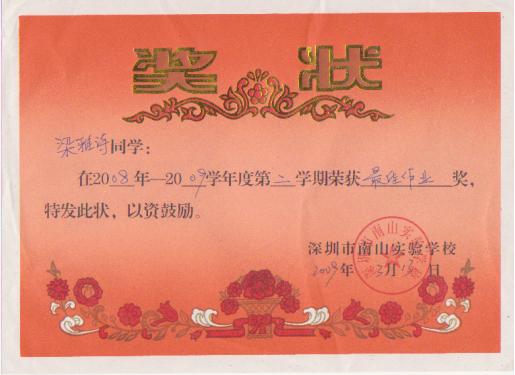 奖状
梁雅诗同学：
在2008年—2009学年度第二学期荣获最佳作业奖，
特发此状，以资鼓励。
深圳市南山实验学校
2009年3月13日